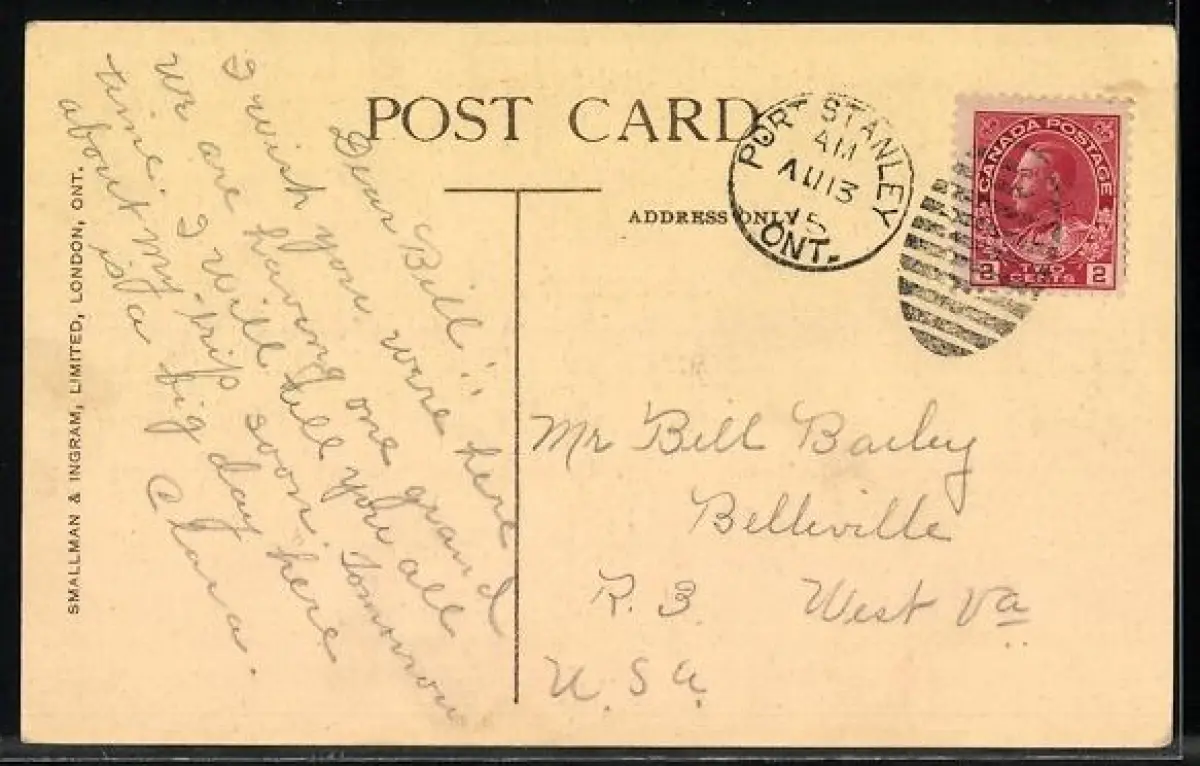 POST CARD
ADDRESS ONLY
SMALLMAN & INGRAM, LIMITED, LONDON, ONT.
PORT STANLEY
AM
AU 13
15
ONT.
CANADA POSTAGE
2 TWO CENTS 2
Dear Bill:
I wish you were here
we are having one grand
time. I will tell you all
about my trip soon. Tomorrow
is a big day here
Clara.
Mr Bill Bailey
Belleville
R. 3. West Va
U. S. a.